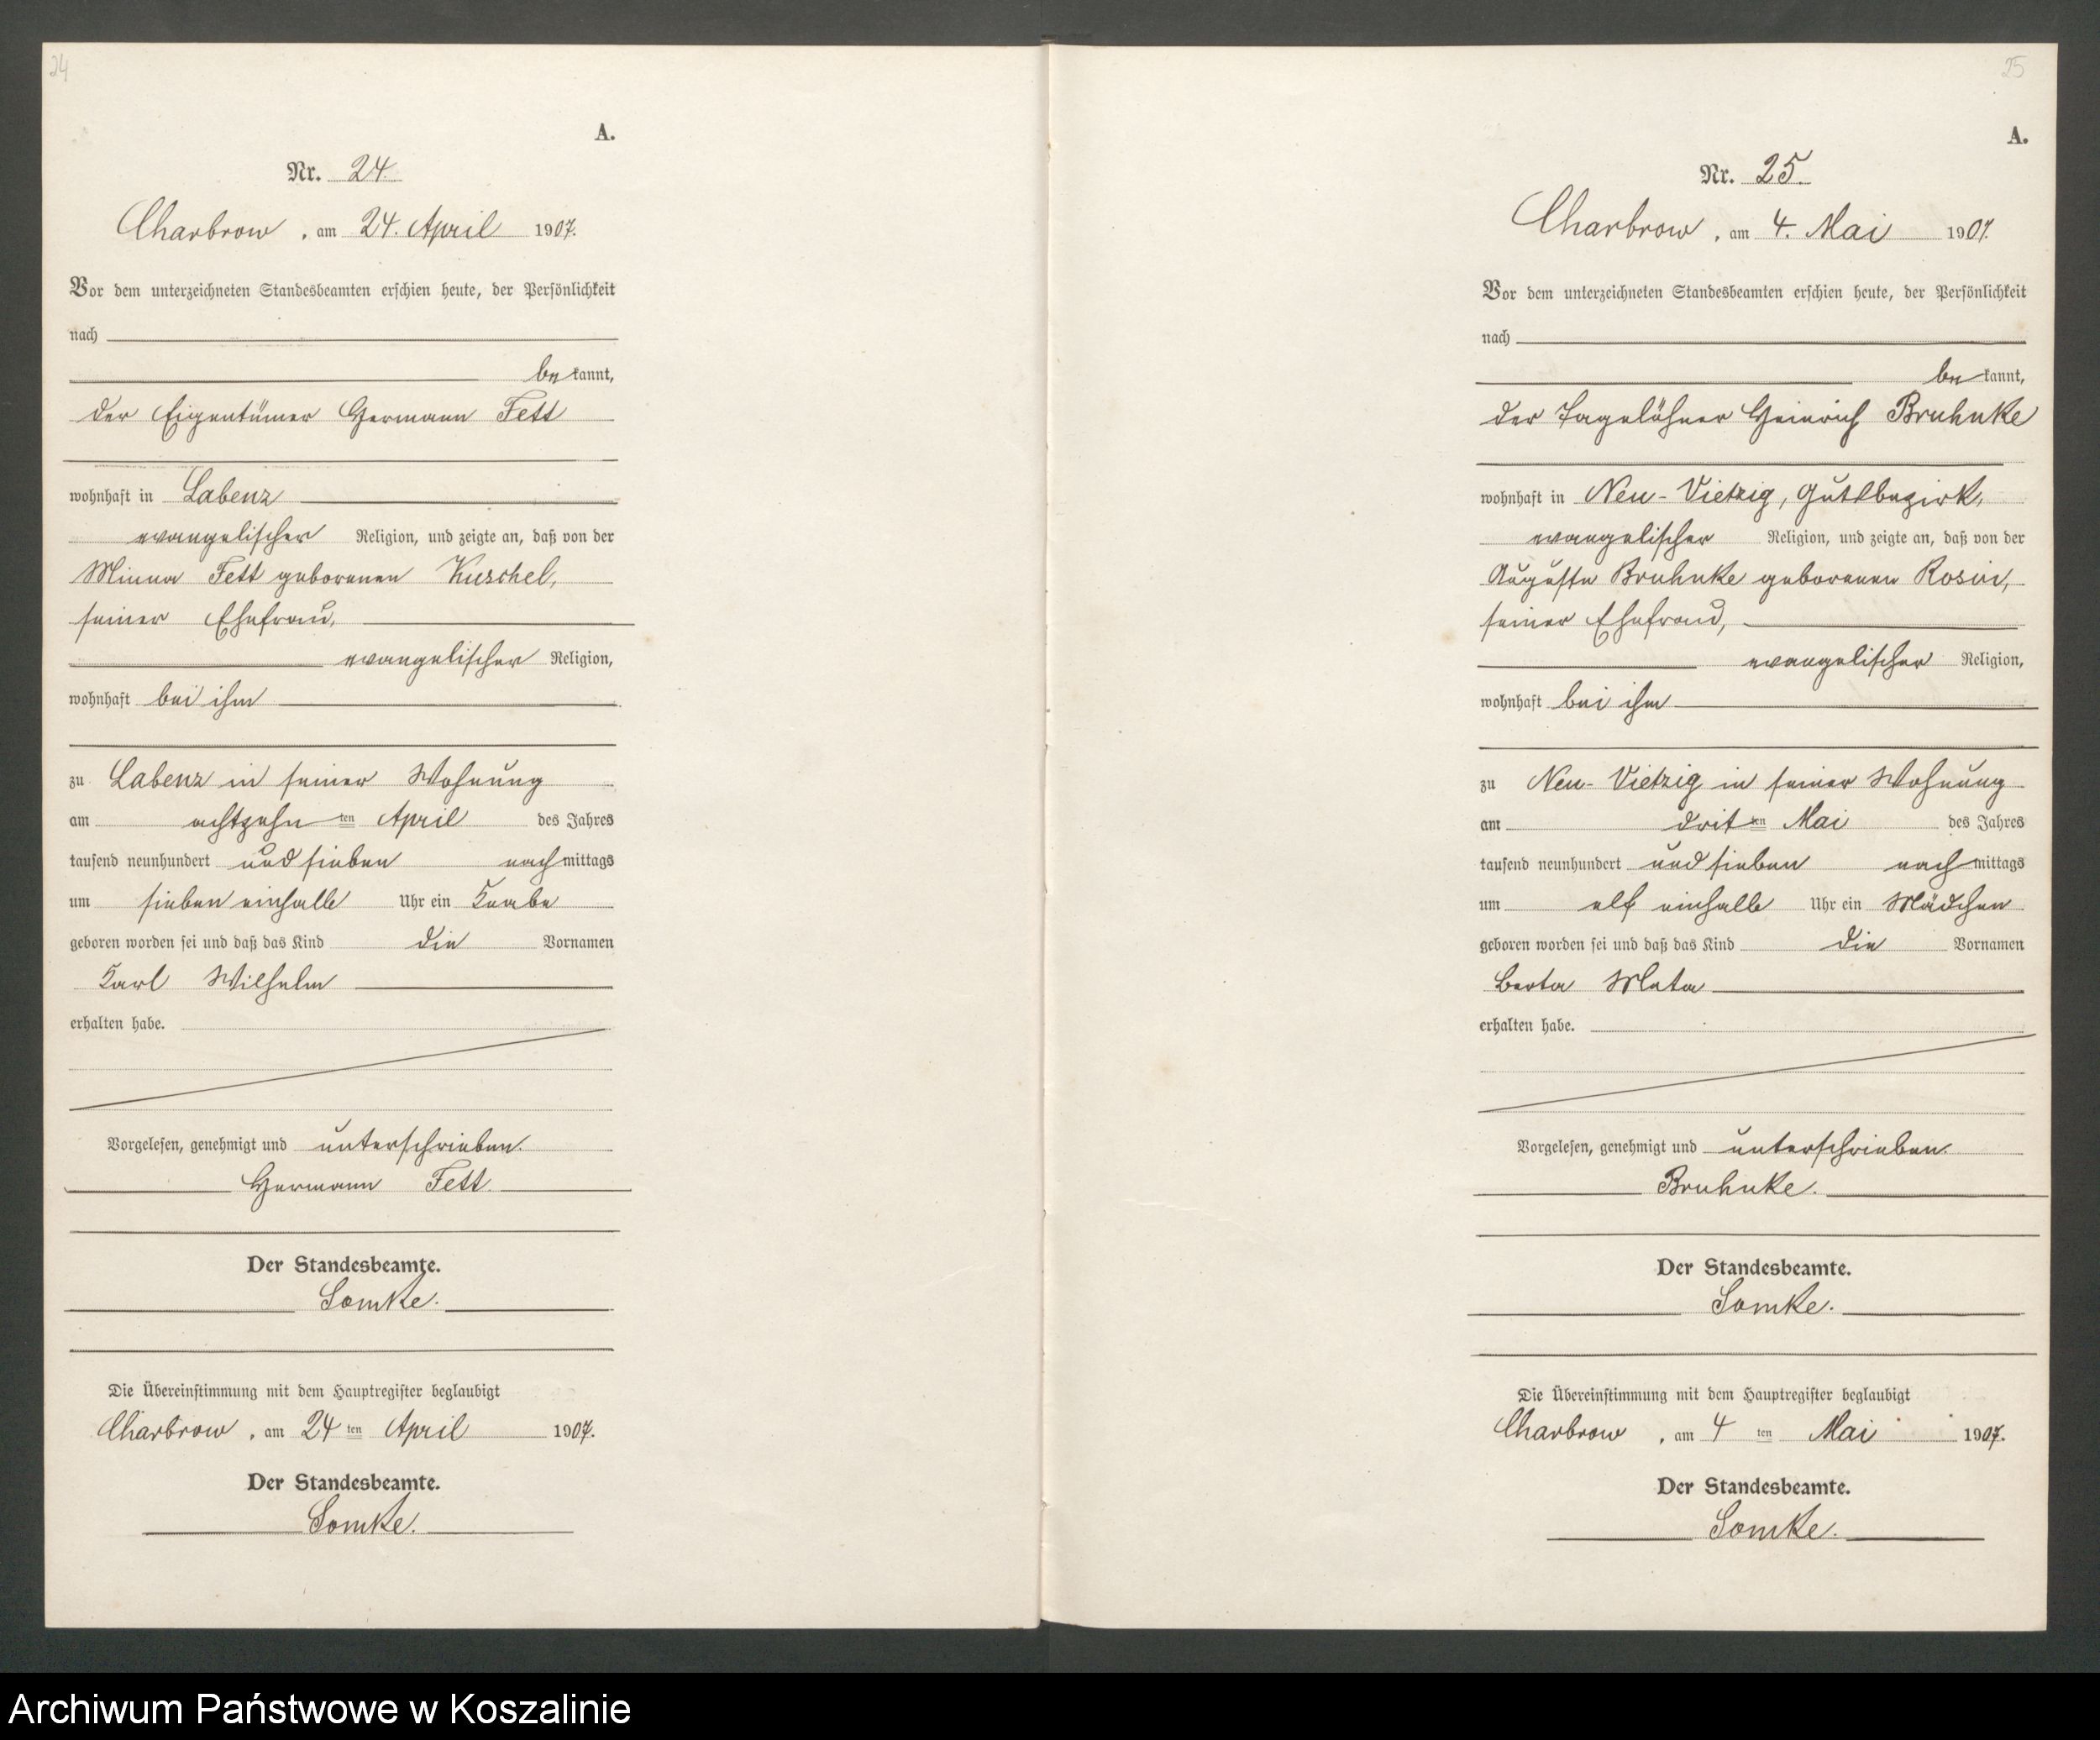 24
A.
Nr. 24.
Charbrow, am 24. April 1907.
Vor dem unterzeichneten Standesbeamten erschien heute, der Persönlichkeit
nach
bekannt,
der Eigentümer Hermann Fett
wohnhaft in Labenz
evangelischer Religion, und zeigte an, daß von der
Minna Fett geborenen Kuschel,
seiner Ehefrau,
evangelischer Religion,
wohnhaft bei ihm
zu Labenz in seiner Wohnung
am achtzehnten April des Jahres
tausend neunhundert und sieben nachmittags
um sieben einhalb Uhr ein Knabe
geboren worden sei und daß das Kind die Vornamen
Karl Wilhelm
erhalten habe.
Vorgelesen, genehmigt und unterschrieben.
Hermann Fett.
Der Standesbeamte.
Somke.
Die Übereinstimmung mit dem Hauptregister beglaubigt
Charbrow, am 24ten April 1907.
Der Standesbeamte.
Somke.
25
A.
Nr. 25.
Charbrow, am 4. Mai 1907.
Vor dem unterzeichneten Standesbeamten erschien heute, der Persönlichkeit
nach
bekannt,
der Tagelöhner Heinrich Bruhnke
wohnhaft in Neu-Vietzig, Gutsbezirk,
evangelischer Religion, und zeigte an, daß von der
Auguste Bruhnke geborenen Rosin,
seiner Ehefrau,
evangelischer Religion,
wohnhaft bei ihm
zu Neu-Vietzig in seiner Wohnung
am dritten Mai des Jahres
tausend neunhundert und sieben nachmittags
um elf einhalb Uhr ein Mädchen
geboren worden sei und daß das Kind die Vornamen
Berta Meta
erhalten habe.
Vorgelesen, genehmigt und unterschrieben.
Bruhnke.
Der Standesbeamte.
Somke.
Die Übereinstimmung mit dem Hauptregister beglaubigt
Charbrow, am 4ten Mai 1907.
Der Standesbeamte.
Somke.
Archiwum Państwowe w Koszalinie